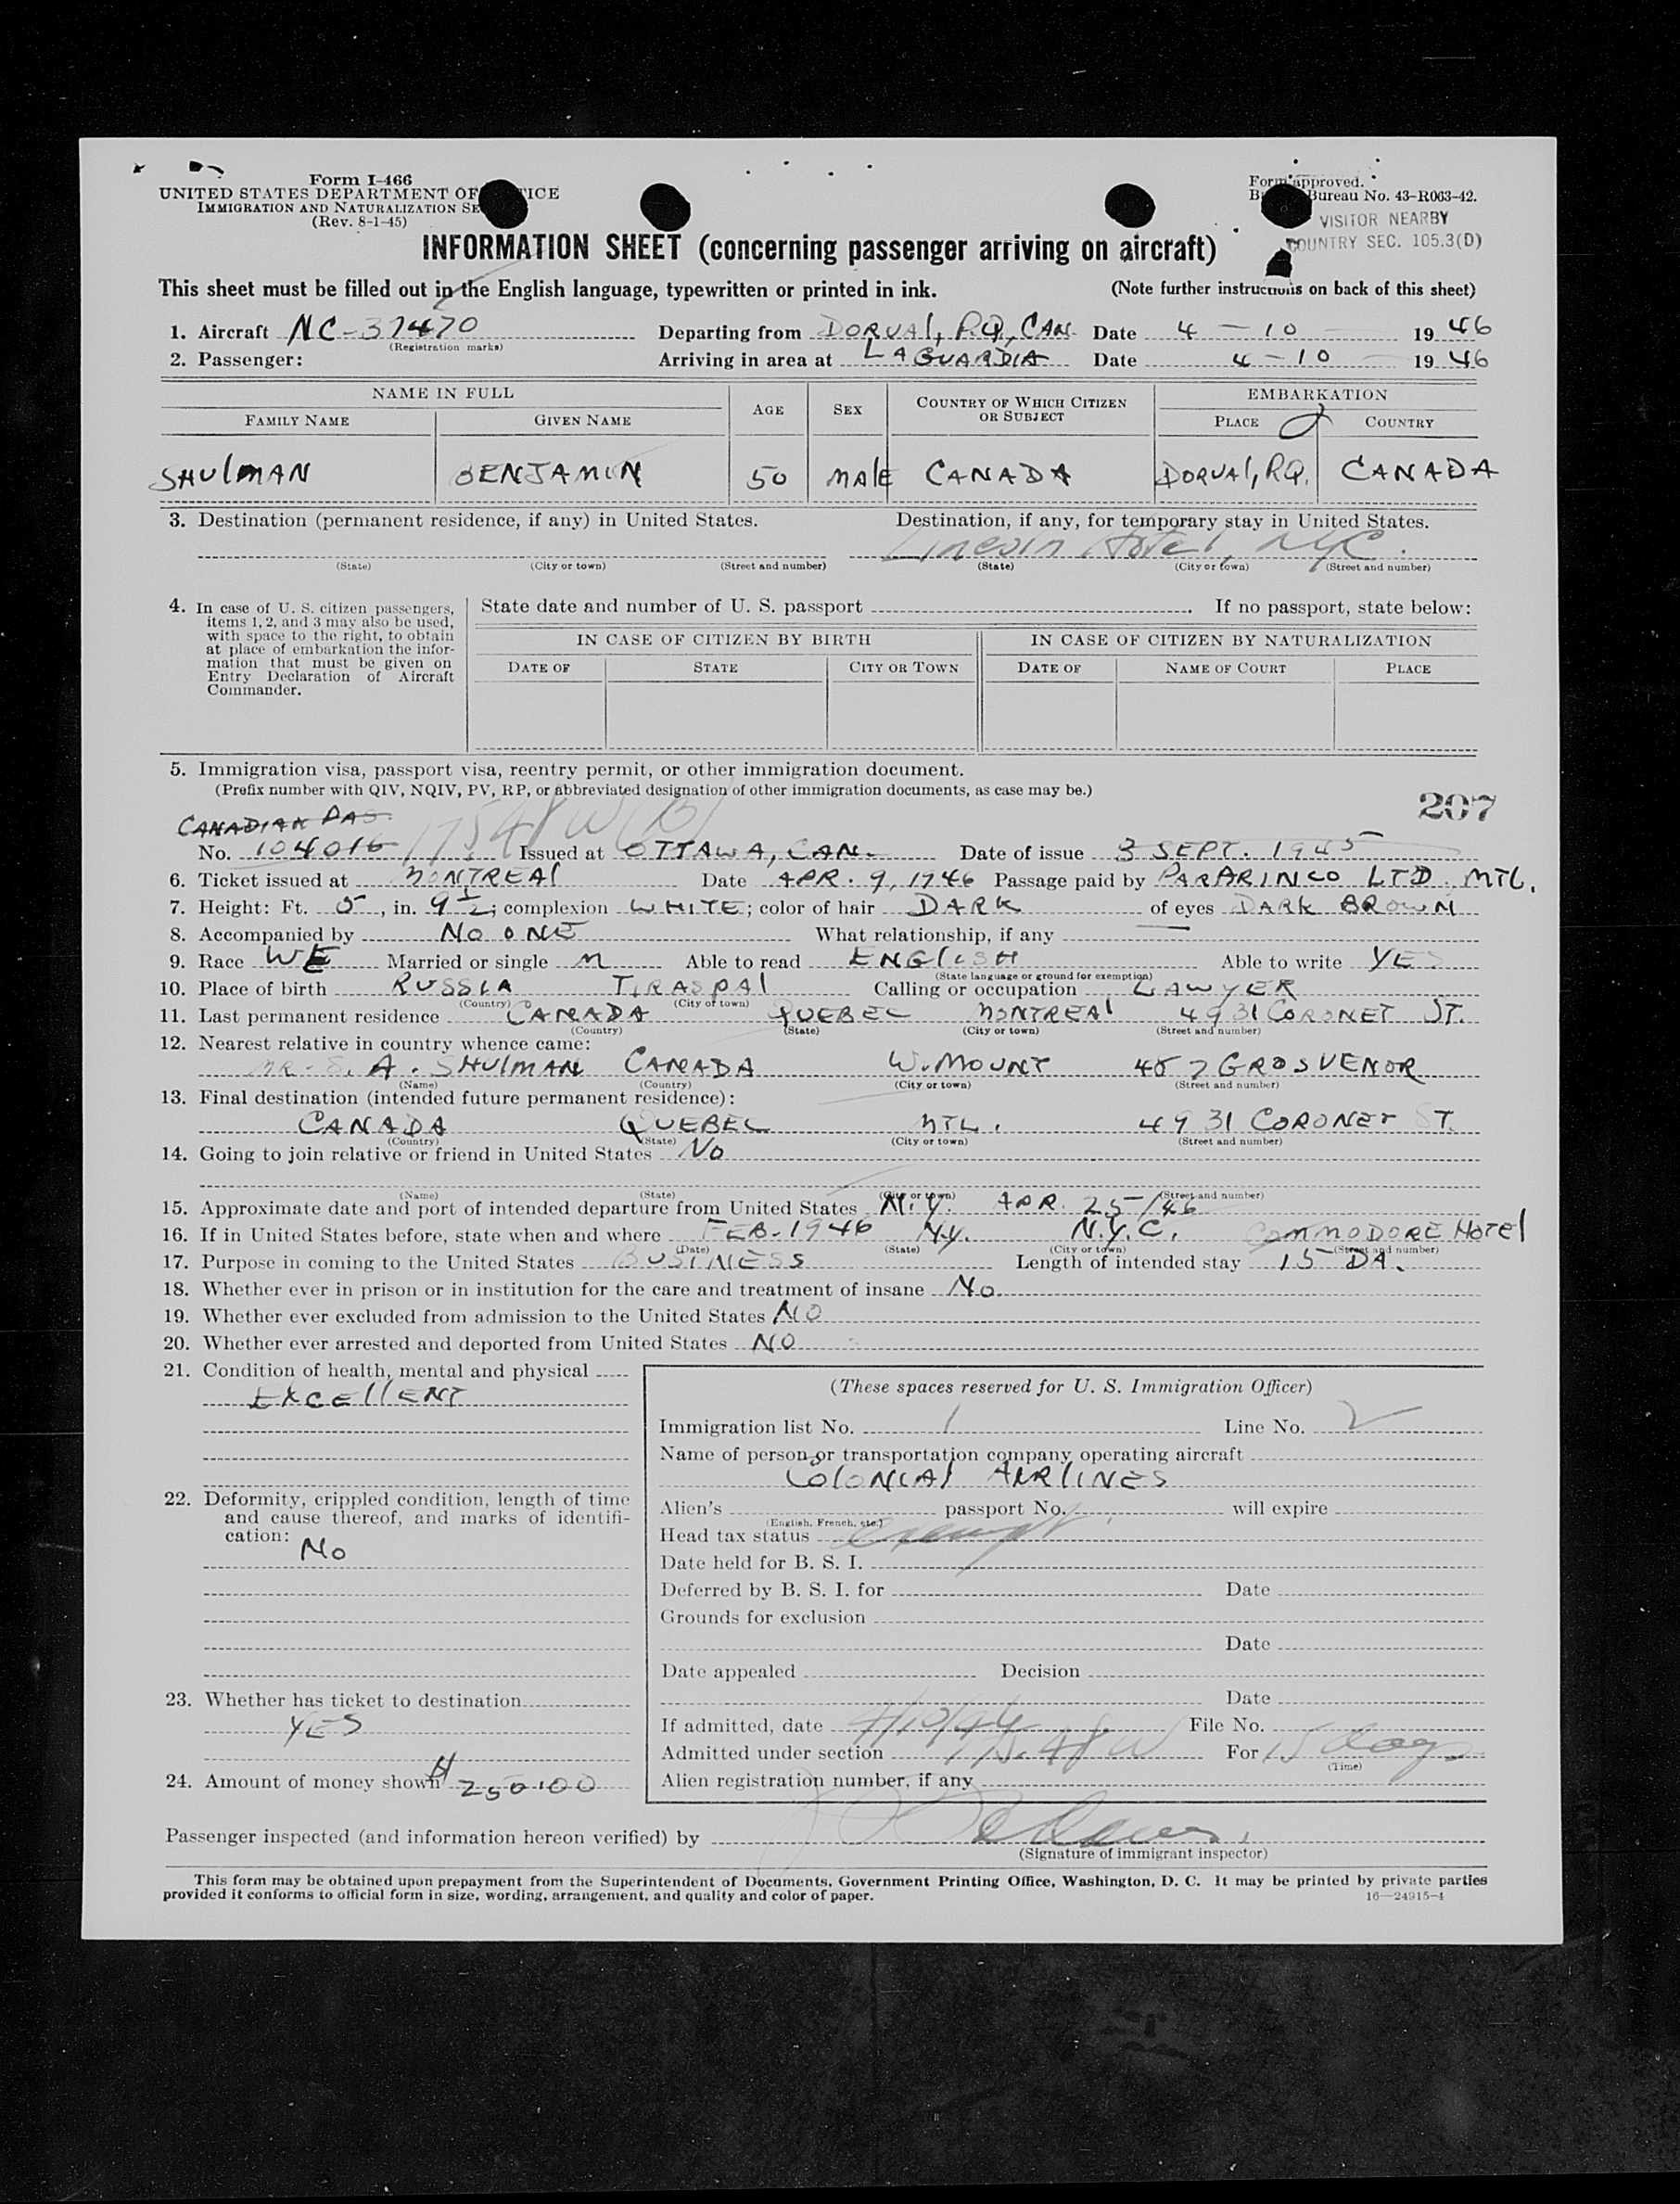 Form I-466
UNITED STATES DEPARTMENT OF JUSTICE
IMMIGRATION AND NATURALIZATION SE
(Rev. 8-1-45)
Form approved.
Bureau No. 43-R063-42.
VISITOR NEARBY
COUNTRY SEC. 105.3(D)
INFORMATION SHEET (concerning passenger arriving on aircraft)
This sheet must be filled out in the English language, typewritten or printed in ink. (Note further instructions on back of this sheet)
1. Aircraft NC-37470 Departing from DORVAL, P.Q., CAN. Date 4-10 1946
(Registration marks)
2. Passenger: Arriving in area at LAGUARDIA Date 4-10 1946
NAME IN FULL AGE SEX COUNTRY OF WHICH CITIZEN OR SUBJECT EMBARKATION
FAMILY NAME GIVEN NAME PLACE COUNTRY
SHULMAN BENJAMIN 50 MALE CANADA DORVAL, P.Q. CANADA
3. Destination (permanent residence, if any) in United States. Destination, if any, for temporary stay in United States.
Lincoln Hotel, NYC.
(State) (City or town) (Street and number) (State) (City or town) (Street and number)
4. In case of U. S. citizen passengers, items 1, 2, and 3 may also be used, with space to the right, to obtain at place of embarkation the information that must be given on Entry Declaration of Aircraft Commander.
State date and number of U. S. passport . If no passport, state below:
IN CASE OF CITIZEN BY BIRTH IN CASE OF CITIZEN BY NATURALIZATION
DATE OF STATE CITY OR TOWN DATE OF NAME OF COURT PLACE
5. Immigration visa, passport visa, reentry permit, or other immigration document.
(Prefix number with QIV, NQIV, PV, RP, or abbreviated designation of other immigration documents, as case may be.)
207
CANADIAN PAS
No. 104016 Issued at OTTAWA, CAN. Date of issue 3 SEPT. 1945
6. Ticket issued at MONTREAL Date APR. 9, 1946 Passage paid by PARARINCO LTD. MTL.
7. Height: Ft. 5, in. 9½; complexion WHITE; color of hair DARK of eyes DARK BROWN
8. Accompanied by NO ONE What relationship, if any —
9. Race WE Married or single M Able to read ENGLISH Able to write YES
(State language or ground for exemption)
10. Place of birth RUSSIA TIRASPAL Calling or occupation LAWYER
(Country) (City or town)
11. Last permanent residence CANADA QUEBEC MONTREAL 4931 CORONET ST.
(Country) (State) (City or town) (Street and number)
12. Nearest relative in country whence came:
MR. S. A. SHULMAN CANADA W.MOUNT 457 GROSVENOR
(Name) (Country) (City or town) (Street and number)
13. Final destination (intended future permanent residence):
CANADA QUEBEC MTL. 4931 CORONET ST.
(Country) (State) (City or town) (Street and number)
14. Going to join relative or friend in United States NO
(Name) (State) (City or town) (Street and number)
15. Approximate date and port of intended departure from United States N.Y. APR. 25/46
16. If in United States before, state when and where FEB. 1946 N.Y. N.Y.C. COMMODORE HOTEL
(Date) (State) (City or town) (Street and number)
17. Purpose in coming to the United States BUSINESS Length of intended stay 15 DA.
18. Whether ever in prison or in institution for the care and treatment of insane NO
19. Whether ever excluded from admission to the United States NO
20. Whether ever arrested and deported from United States NO
21. Condition of health, mental and physical
EXCELLENT
22. Deformity, crippled condition, length of time and cause thereof, and marks of identification:
NO
23. Whether has ticket to destination
YES
24. Amount of money shown $250.00
(These spaces reserved for U. S. Immigration Officer)
Immigration list No. 1 Line No. 2
Name of person or transportation company operating aircraft
COLONIAL AIRLINES
Alien's passport No. will expire
(English, French, etc.)
Head tax status exempt
Date held for B. S. I.
Deferred by B. S. I. for Date
Grounds for exclusion
Date
Date appealed Decision
Date
If admitted, date 4/10/46 File No.
Admitted under section 175.48 W For 15 days
(Time)
Alien registration number, if any
Passenger inspected (and information hereon verified) by
(Signature of immigrant inspector)
This form may be obtained upon prepayment from the Superintendent of Documents, Government Printing Office, Washington, D. C. It may be printed by private parties
provided it conforms to official form in size, wording, arrangement, and quality and color of paper.
16—24915-4